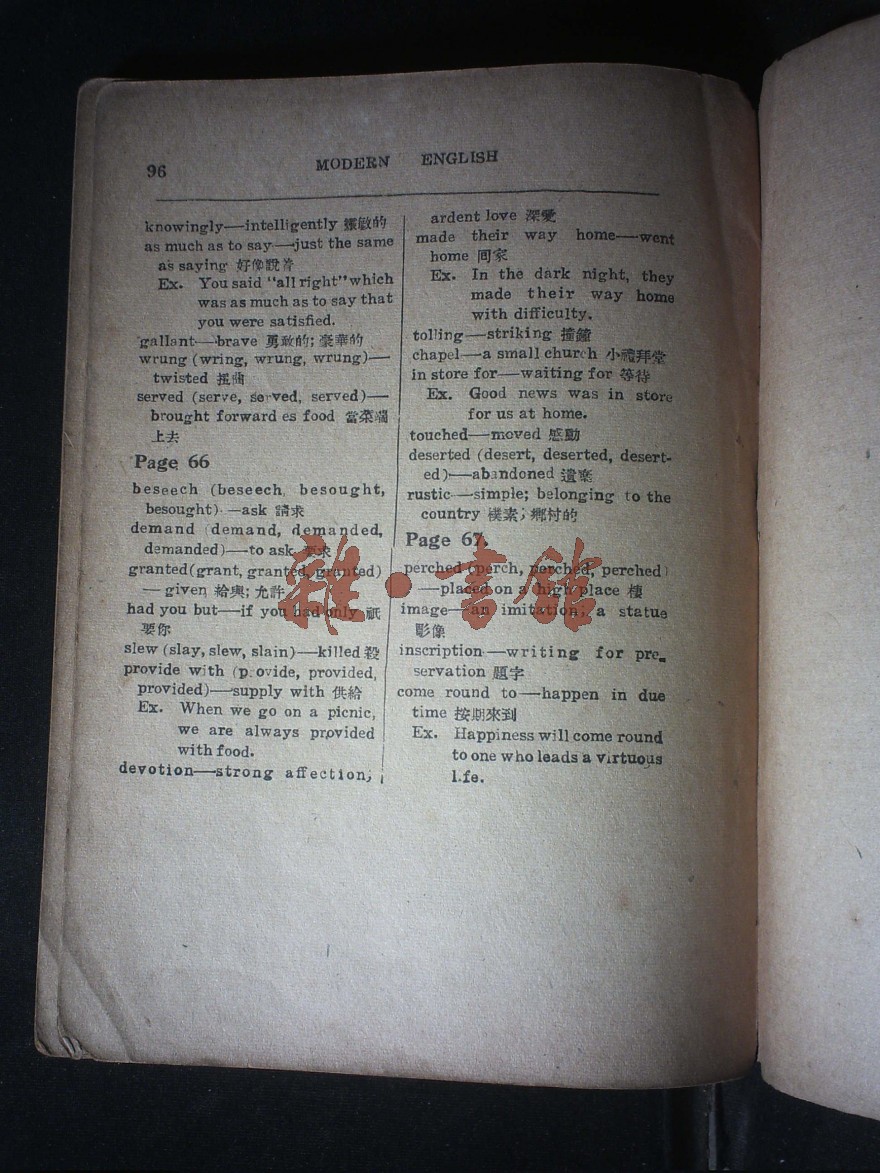 96
MODERN ENGLISH
knowingly—intelligently 靈敏的
as much as to say—just the same
as saying 好像說着
Ex. You said "all right" which
was as much as to say that
you were satisfied.
gallant—brave 勇敢的; 豪華的
wrung (wring, wrung, wrung)—
twisted 扭曲
served (serve, served, served)—
brought forward es food 當菜端
上去
Page 66
beseech (beseech, besought,
besought)—ask 請求
demand (demand, demanded,
demanded)—to ask 要求
granted (grant, granted, granted)
—given 給與; 允許
had you but—if you had only 祇
要你
slew (slay, slew, slain)—killed 殺
provide with (p.ovide, provided,
provided)—supply with 供給
Ex. When we go on a picnic,
we are always provided
with food.
devotion—strong affection;
ardent love 深愛
made their way home—went
home 回家
Ex. In the dark night, they
made their way home
with difficulty.
tolling—striking 撞鐘
chapel—a small church 小禮拜堂
in store for—waiting for 等待
Ex. Good news was in store
for us at home.
touched—moved 感動
deserted (desert, deserted, desert-
ed)—abandoned 遺棄
rustic—simple; belonging to the
country 樸素; 鄉村的
Page 67.
perched (perch, perched, perched)
—placed on a high place 棲
image—an imitation; a statue
影像
inscription—writing for pre-
servation 題字
come round to—happen in due
time 按期來到
Ex. Happiness will come round
to one who leads a virtuous
l.fe.
雜·書館